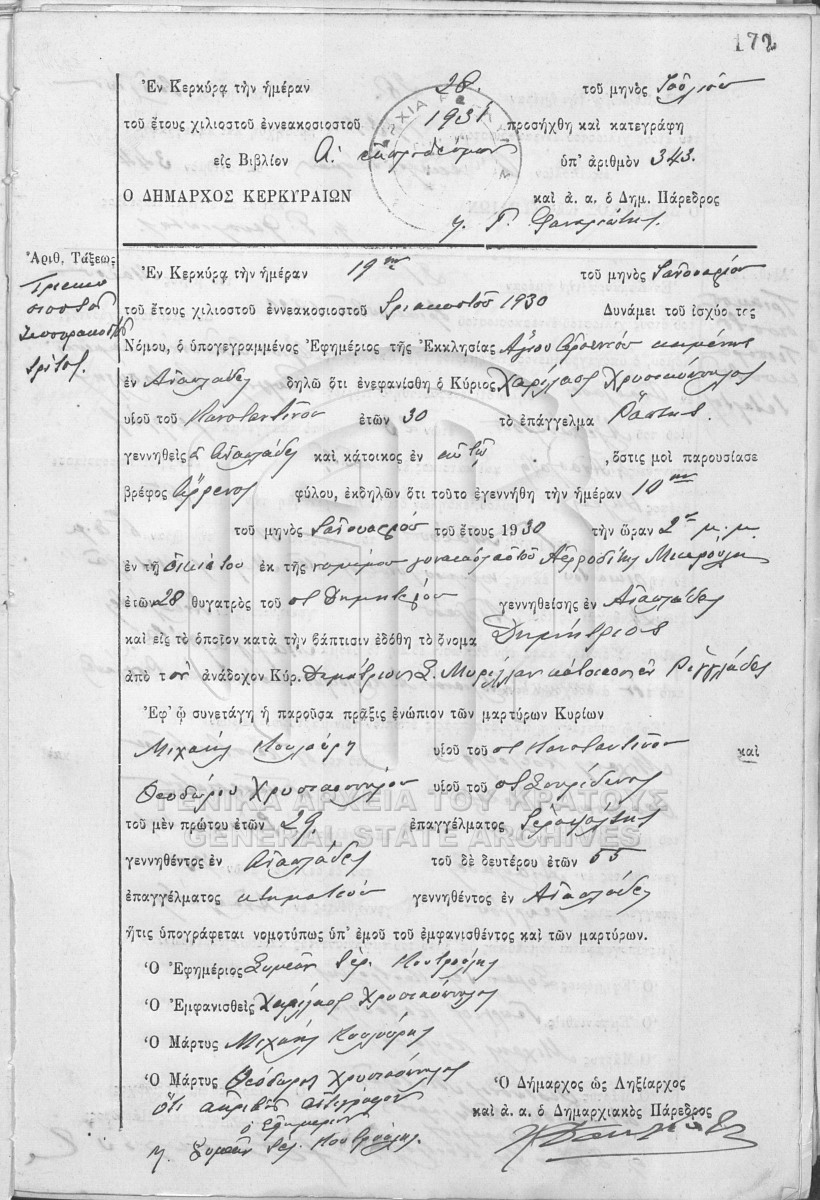 172
Ἐν Κερκύρᾳ τὴν ἡμέραν 28. τοῦ μηνὸς Ἰουλίου
τοῦ ἔτους χιλιοστοῦ ἐννεακοσιοστοῦ 1931 προσήχθη καὶ κατεγράφη
εἰς Βιβλίον Α. ἐκπροθέσμων ὑπ' ἀριθμὸν 343.
Ο ΔΗΜΑΡΧΟΣ ΚΕΡΚΥΡΑΙΩΝ καὶ ἀ. α. ὁ Δημ. Πάρεδρος
Ἀριθ. Τάξεως
Τριακο
σιοστὸν
Τεσσαρακοστὸ
τρίτο
Ἐν Κερκύρᾳ τὴν ἡμέραν 19ην τοῦ μηνὸς Ἰανουαρίου
τοῦ ἔτους χιλιοστοῦ ἐννεακοσιοστοῦ τριακοστοῦ 1930 Δυνάμει τοῦ ἰσχύοντος
Νόμου, ὁ ὑπογεγραμμένος Ἐφημέριος τῆς Ἐκκλησίας Ἁγίου
ἐν δηλῶ ὅτι ἐνεφανίσθη ὁ Κύριος Χαρίλαος Χρυσικόπουλος
υἱοῦ τοῦ Κωνσταντίνου ἐτῶν 30 τὸ ἐπάγγελμα Ράπτης
γεννηθεὶς καὶ κάτοικος ἐν αὐτῷ, ὅστις μοὶ παρουσίασε
βρέφος ἄρρενος φύλου, ἐκδηλῶν ὅτι τοῦτο ἐγεννήθη τὴν ἡμέραν 10ην
τοῦ μηνὸς Ἰανουαρίου τοῦ ἔτους 1930 τὴν ὥραν 2αν μ.μ.
ἐν τῇ οἰκίᾳ του ἐκ τῆς νομίμου γυναικός του Ἀφροδίτης
ἐτῶν 28 θυγατρὸς τοῦ Δημητρίου γεννηθείσης ἐν
καὶ εἰς τὸ ὁποῖον κατὰ τὴν βάπτισιν ἐδόθη τὸ ὄνομα Δημήτριος
ἀπὸ τὸν ἀνάδοχον Κύρ. Δημήτριον Σ. κάτοικον ἐν
Ἐφ' ᾧ συνετάγη ἡ παροῦσα πρᾶξις ἐνώπιον τῶν μαρτύρων Κυρίων
Μιχαὴλ Κουλούρη υἱοῦ τοῦ Κωνσταντίνου καὶ
Θεοδώρου Χρυσικοπούλου υἱοῦ τοῦ Σπυρίδωνος
ΓΕΝΙΚΑ ΑΡΧΕΙΑ ΤΟΥ ΚΡΑΤΟΥΣ
τοῦ μὲν πρώτου ἐτῶν 29 ἐπαγγέλματος
GENERAL STATE ARCHIVES
γεννηθέντος ἐν τοῦ δὲ δευτέρου ἐτῶν 55
ἐπαγγέλματος κτηματίου γεννηθέντος ἐν
ἥτις ὑπογράφεται νομοτύπως ὑπ' ἐμοῦ τοῦ ἐμφανισθέντος καὶ τῶν μαρτύρων.
Ὁ Ἐφημέριος Συμεὼν Ἱερ. Κουτρούλης
Ὁ Ἐμφανισθεὶς Χαρίλαος Χρυσικόπουλος
Ὁ Μάρτυς Μιχαὴλ Κουλούρης
Ὁ Μάρτυς Θεόδωρος Χρυσικόπουλος
Ὁ Δήμαρχος ὡς Ληξίαρχος
ὅτι ἀκριβὲς ἀντίγραφον
καὶ ἀ. α. ὁ Δημαρχιακὸς Πάρεδρος
ὁ Ἐφημέριος
Συμεὼν Ἱερ. Κουτρούλης.